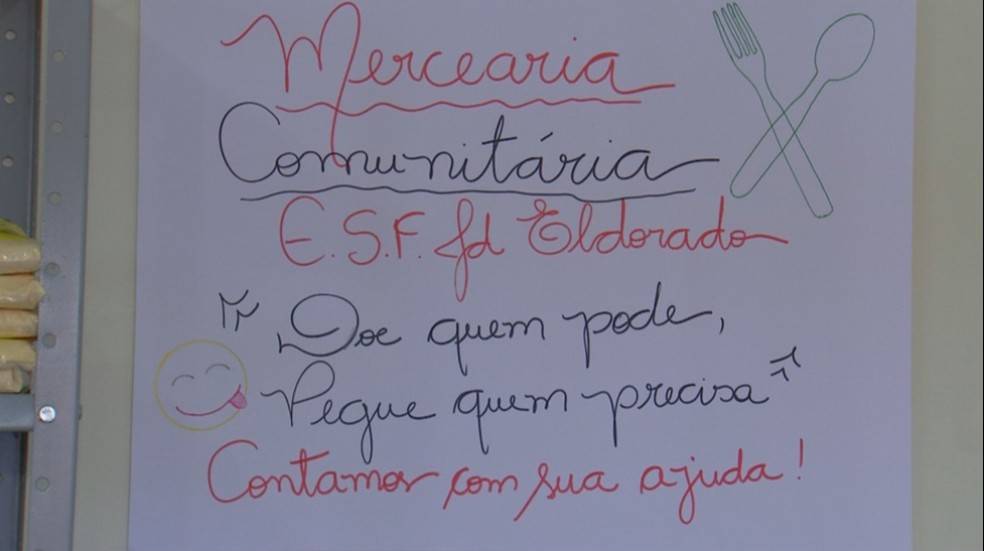 Mercearia
Comunitária
E.S.F. Jd Eldorado
"Doe quem pode,
Pegue quem precisa"
Contamos com sua ajuda!